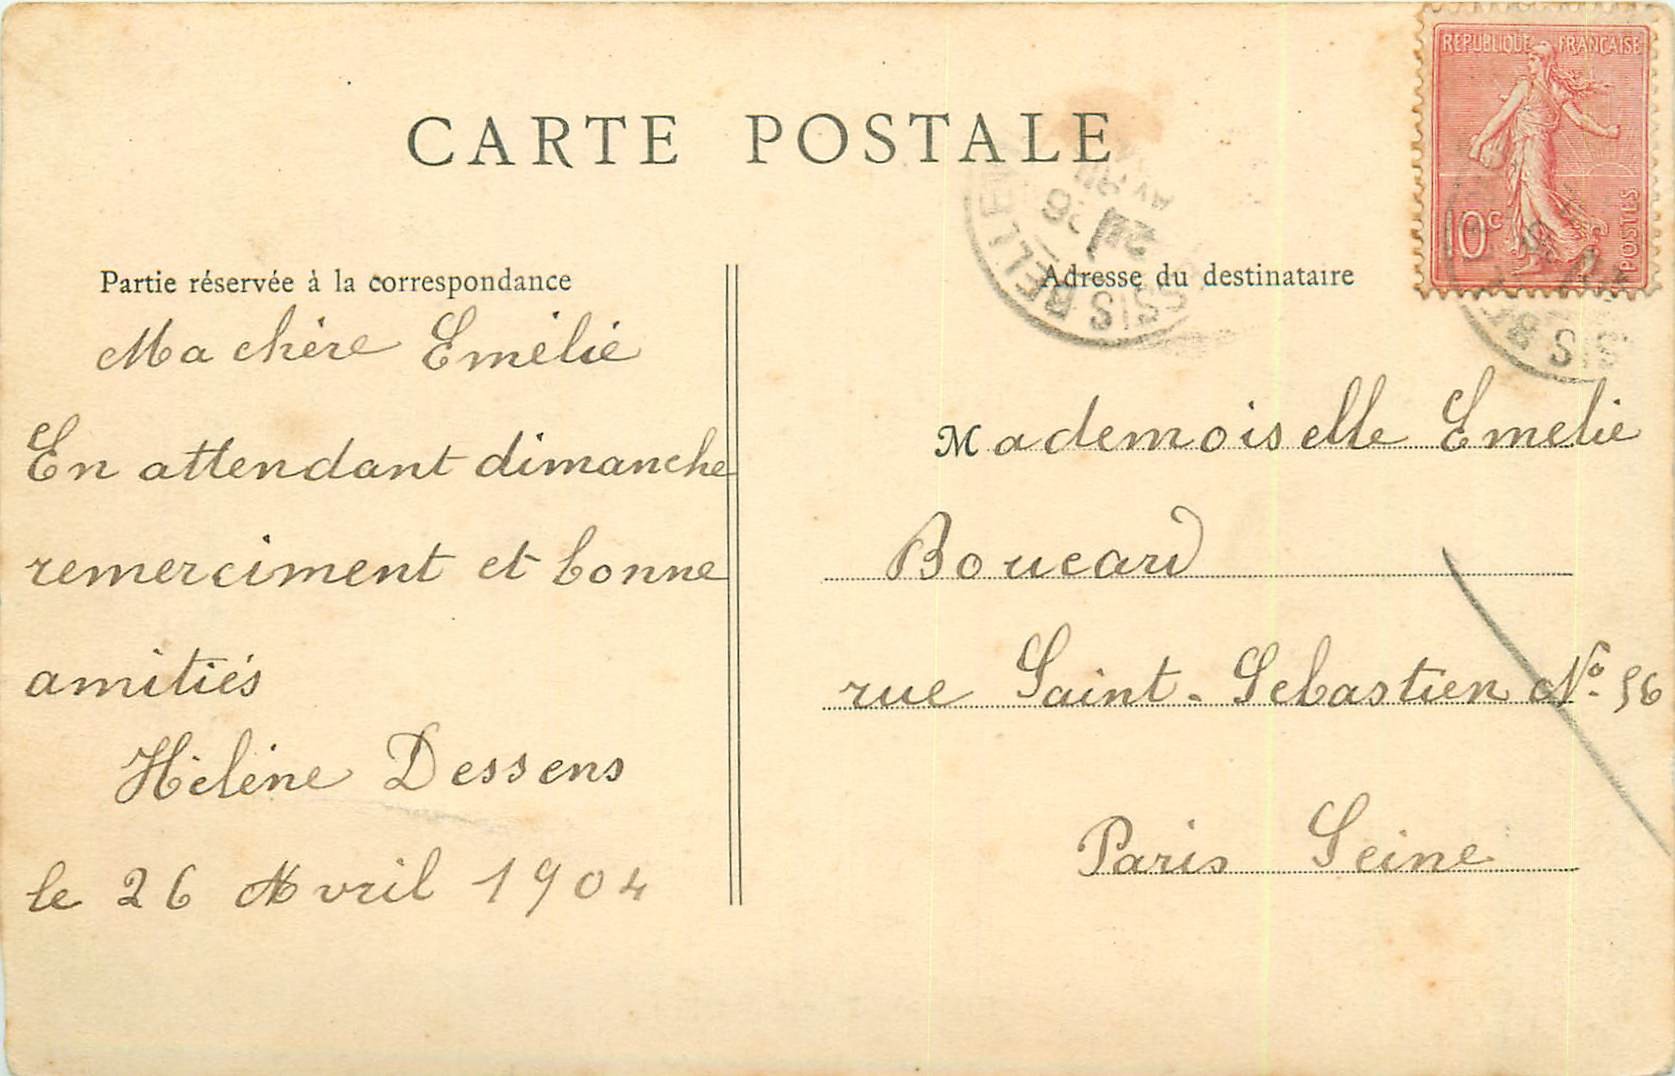 CARTE POSTALE
REPUBLIQUE FRANÇAISE
10c
POSTES
Partie réservée à la correspondance
Ma chère Emélie
En attendant dimanche
remerciment et bonne
amitiés
Hélène Dessens
le 26 Avril 1904
Adresse du destinataire
Mademoiselle Emelie
Boucard
rue Saint-Sebastien No 56
Paris Seine